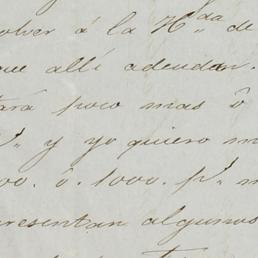 olver á la H.da de
que allí adeudan.
tará poco mas ô
P.s y yo quiero m
00. ô. 1000. p.s m
presentan algunos